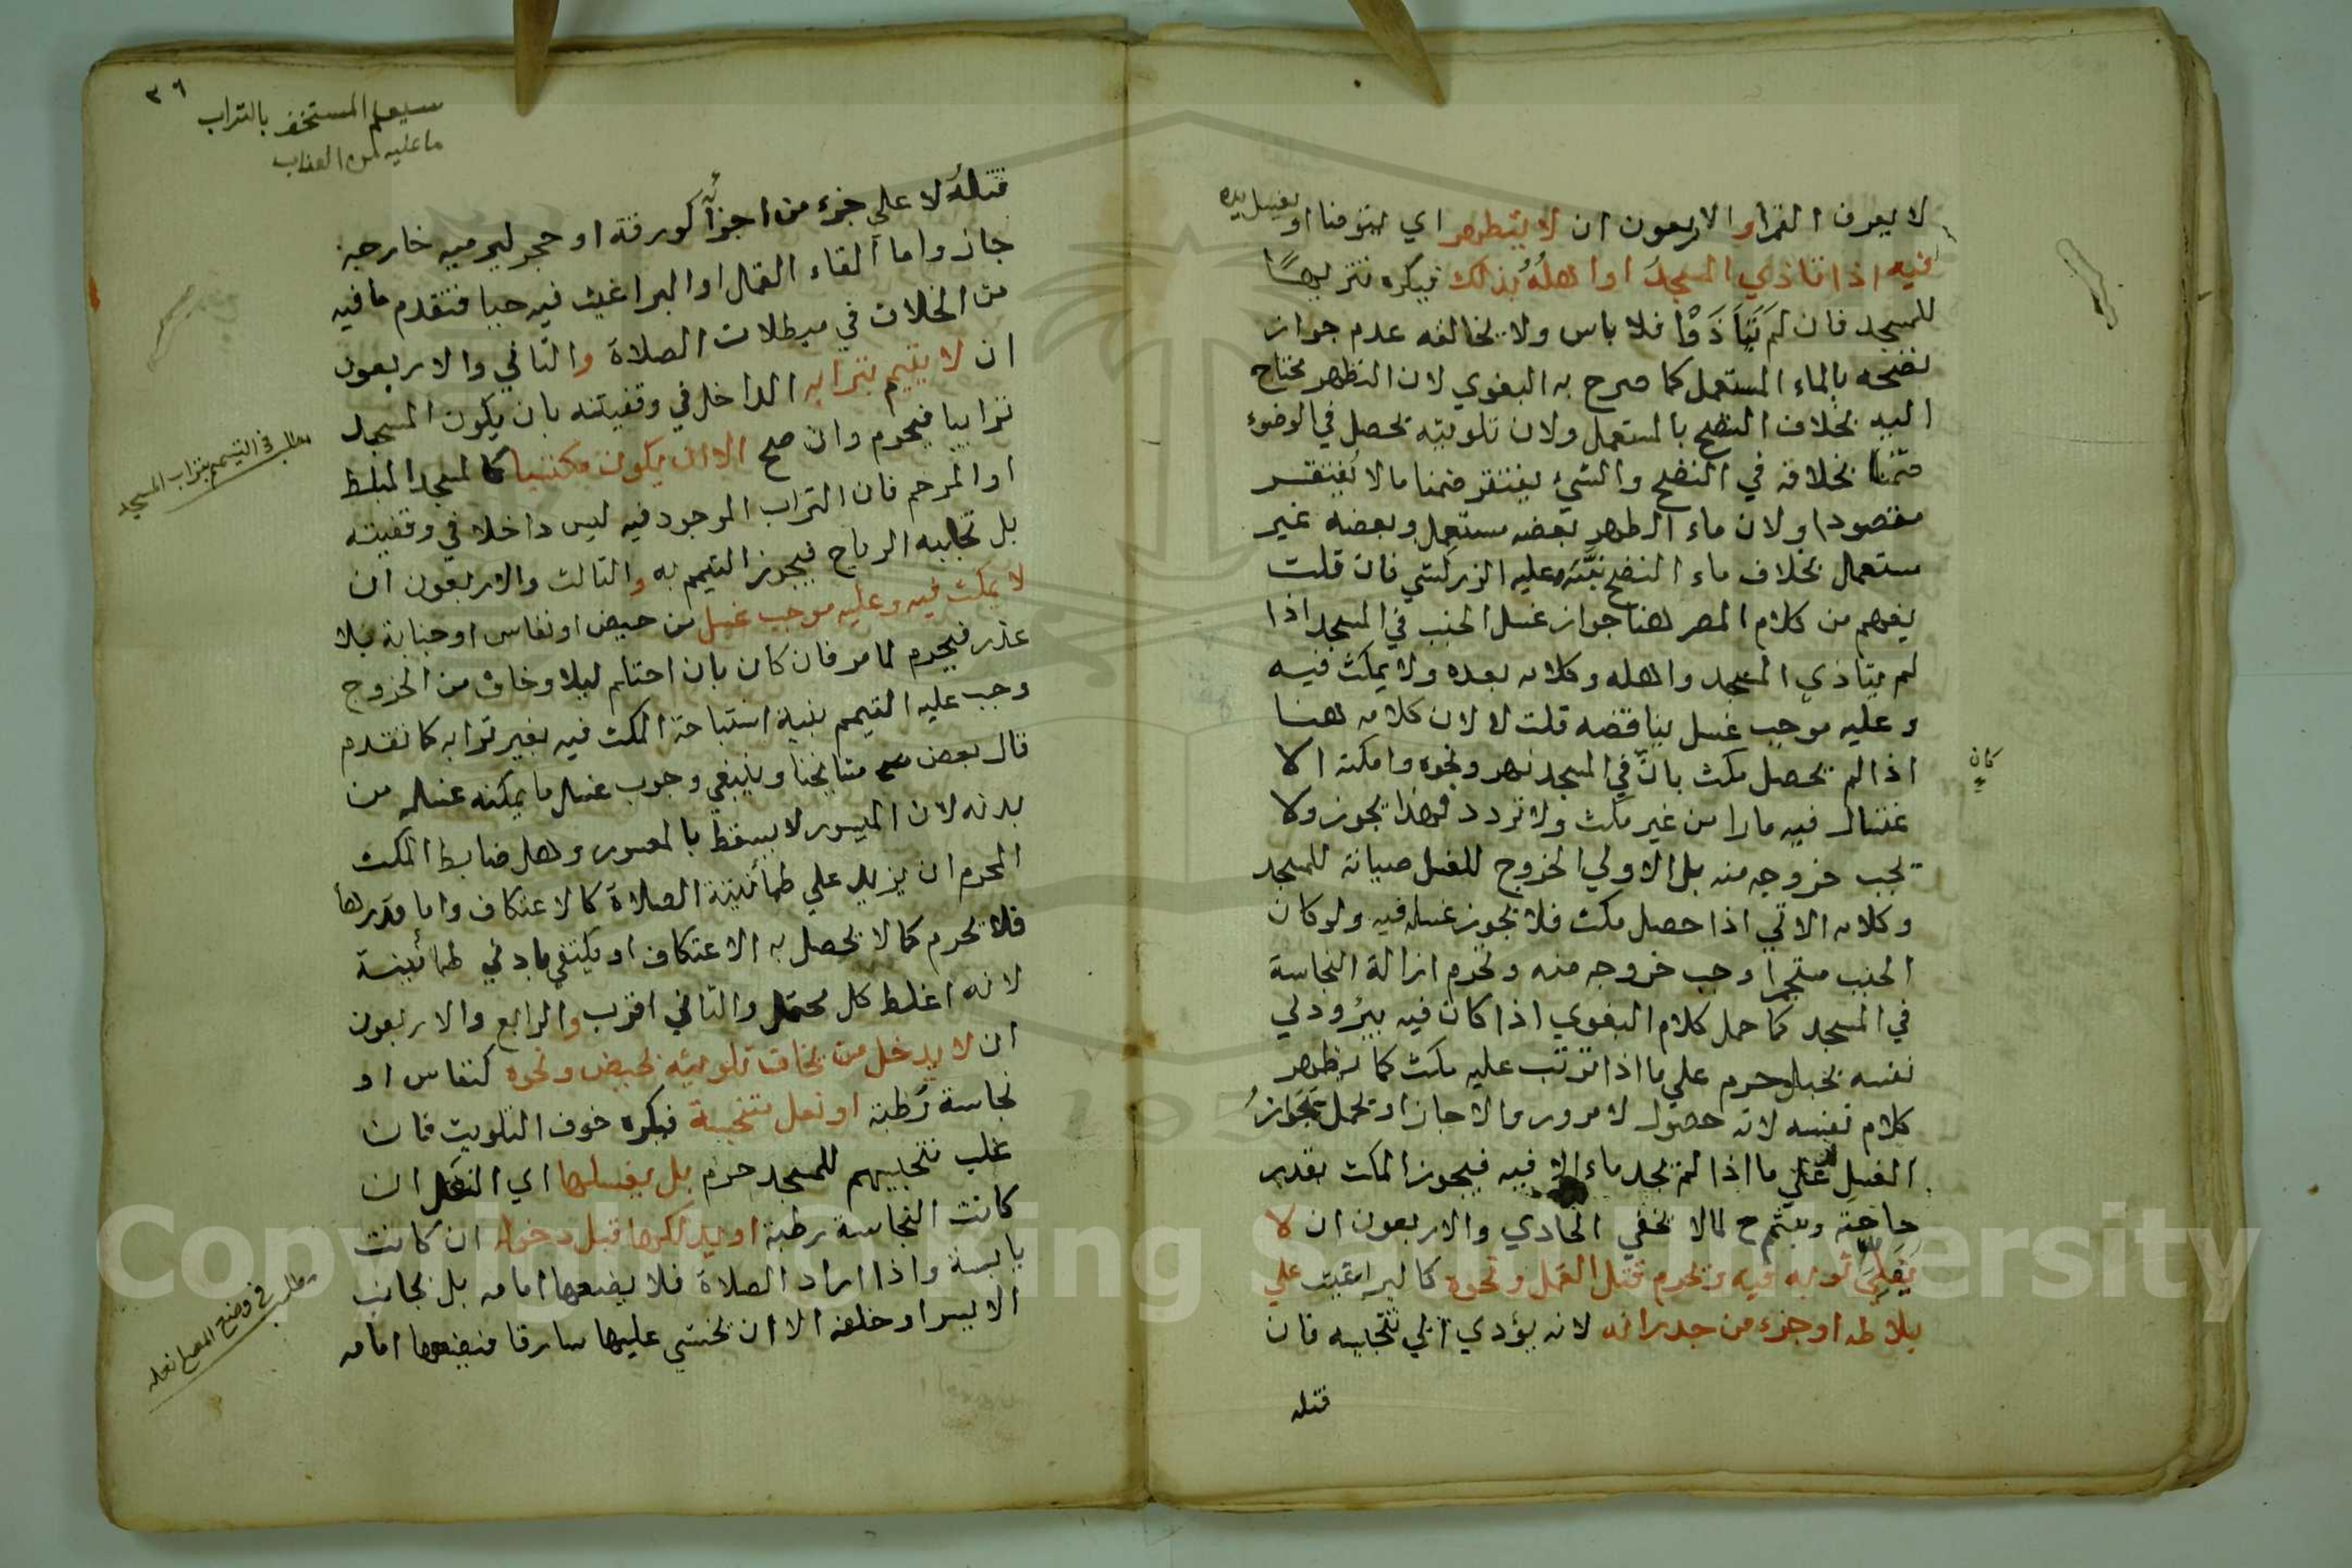 لا يعرف القرا والاربعون ان لا يتطهر اي يتوضا او يغسل يده
فيه اذا تاذي المسجد او اهله بذلك فيكره تنزيها
للمسجد فان لم يتاذوا فلا باس ولا يخالفه عدم جواز
نضحه بالماء المستعمل كما صرح به البغوي لان التطهر محتاج
اليه بخلاف النضح بالمستعمل ولان تلويثه يحصل في الوضوء
ضمنا بخلافه في النضح والشيء يغتفر ضمنا ما لا يغتفر
مقصودا ولان ماء الطهر بعضه مستعمل وبعضه غير
مستعمل بخلاف ماء النضح نبه عليه الزركشي فان قلت
يفهم من كلام المصر هنا جواز غسل الجنب في المسجد اذا
لم يتاذي المسجد واهله وكلامه بعده ولا يمكث فيه
وعليه موجب غسل يناقضه قلت لا لان كلامه هنا
كان
اذا لم يحصل مكث بان في المسجد نهر ونحوه وامكنه الا
غتسال فيه مارا من غير مكث ولا تردد فهذا يجوز ولا
يجب خروجه منه بل الاولي الخروج للغسل صيانة للمسجد
وكلامه الاتي اذا حصل مكث فلا يجوز غسله فيه ولو كان
الجنب مستجمرا وجب خروجه منه وتحرم ازالة النجاسة
في المسجد كما حمل كلام البغوي اذا كان فيه بير ودلي
نفسه بحبل حرم علي ما اذا ترتب عليه مكث كما يظهر
كلام نفسه لانه حصول لا مرور والا جاز او يحمل تجواز
الغسل علي ما اذا لم يجد ماء الا فيه فيجوز المكث بقدر
حاجته ويتيمم ح لما لا يخفي الحادي والاربعون ان لا
يفلي ثوبه فيه ويحرم قتل القمل ونحوه كالبراغيث علي
بلاطه او جزء من جدرانه لانه يؤدي الي تنجيسه فان
قتله
٣٦
سيعلم المستخف بالتراب
ما عليه من العذاب
قتله لا علي جزء من اجزائه كورقة او حجر ليرميه خارجه
جاز واما القاء القمل او البراغيث فيه حيا فتقدم ما فيه
من الخلاف في مبطلات الصلاة والثاني والاربعون
ان لا يتيمم بترابه الداخل في وقفيته بان يكون المسجد
مطلب في التيمم بتراب المسجد
ترابيا فيحرم وان صح الا ان يكون مكتسبا كالمسجد المبلط
او المرخم فان التراب الموجود فيه ليس داخلا في وقفيته
بل تجلبه الرياح فيجوز التيمم به والثالث والاربعون ان
لا يمكث فيه وعليه موجب غسل من حيض او نفاس او جنابة بلا
عذر فيحرم لما مر فان كان بان احتلم ليلا وخاف من الخروج
وجب عليه التيمم بنية استباحة المكث فيه بغير ترابه كما تقدم
قال بعض مشايخنا وينبغي وجوب غسل ما يمكنه غسله من
بدنه لان الميسور لا يسقط بالمعسور وهل ضابط المكث
المحرم ان يزيد علي طمأنينة الصلاة كالاعتكاف واما قدرها
فلا يحرم كما لا يحصل به الاعتكاف او يكتفي بادني طمأنينة
لانه اغلظ كل محتمل والثاني اقرب والرابع والاربعون
ان لا يدخل من يخاف تلويثه بحيض ونحوه كنفاس او
نجاسة رطبة او نعل متنجسة فيكره خوف التلويث فان
غلب تنجيسهم للمسجد حرم بل يغسلها اي النعل ان
كانت النجاسة رطبة او يدلكها قبل دخوله ان كانت
يابسة واذا اراد الصلاة فلا يضعها امامه بل بجانبه
مطلب في وضع المصلي نعله
الايسر او خلفه الا ان يخشي عليها سارقا فيضعها امامه
Copyright © King Saud University
195